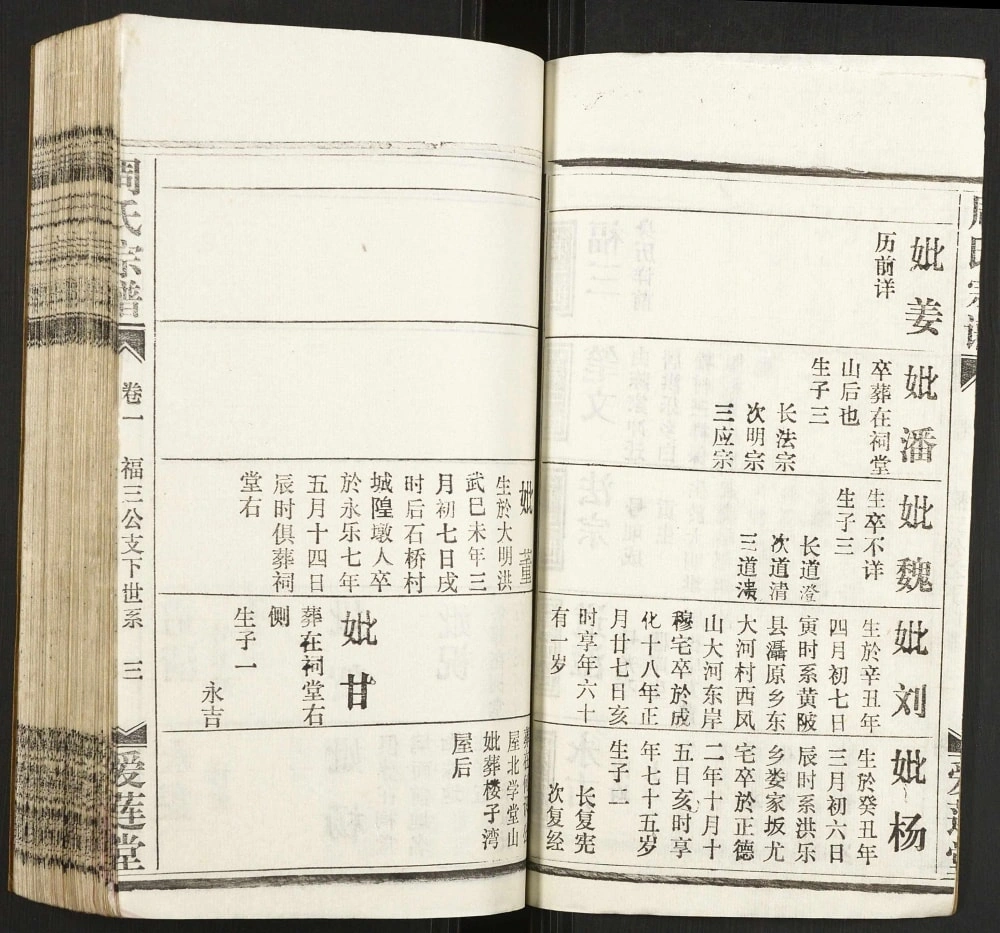 周氏宗谱
妣姜
历前详
妣潘
卒葬在祠堂
山后也
生子三
长法宗
次明宗
三应宗
妣魏
生卒不详
生子三
长道澄
次道清
三道溃
妣刘
生於辛丑年
四月初七日
寅时系黄陂
县滠原乡东
大河村西风
山大河东岸
穆宅卒於成
化十八年正
月廿七日亥
时享年六十
有一岁
妣杨
生於癸丑年
三月初六日
辰时系洪乐
乡娄家坂尤
宅卒於正德
二年十月十
五日亥时享
年七十五岁
生子二
长复宪
次复经
爱莲堂
妣董
生於大明洪
武巳未年三
月初七日戌
时后石桥村
城隍墩人卒
於永乐七年
五月十四日
辰时俱葬祠
堂右
妣甘
葬在祠堂右
侧
生子一
永吉
屋北学堂山
妣葬楼子湾
屋后
周氏宗谱
卷一
福三公支下世系
三
爱莲堂